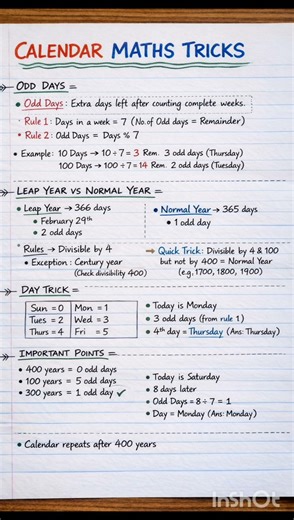 CALENDAR MATHS TRICKS
ODD DAYS =
• Odd Days : Extra days left after counting complete weeks.
• Rule 1 : Days in a week = 7 (No. of Odd days = Remainder)
• Rule 2 : Odd Days = Days % 7
• Example: 10 Days → 10 ÷ 7 = 3 Rem. 3 odd days (Thursday)
100 Days → 100 ÷ 7 = 14 Rem. 2 odd days (Tuesday)
LEAP YEAR VS NORMAL YEAR =
• Leap Year → 366 days
• February 29th
• 2 odd days
• Normal Year → 365 days
• 1 odd day
• Rules → Divisible by 4
• Exception : Century year
(Check divisibility 400)
⇒ Quick Trick: Divisible by 4 & 100
but not by 400 = Normal Year
(e.g, 1700, 1800, 1900)
DAY TRICK =
Sun = 0 Mon = 1
Tues = 2 Wed = 3
Thurs = 4 Fri = 5
• Today is Monday
• 3 odd days (from rule 1)
• 4th day = Thursday (Ans: Thursday)
IMPORTANT POINTS =
• 400 years = 0 odd days
• 100 years = 5 odd days
• 300 years = 1 odd day ✓
• Today is Saturday
• 8 days later
• Odd Days = 8 ÷ 7 = 1
• Day = Monday (Ans: Monday)
• Calendar repeats after 400 years
InShot